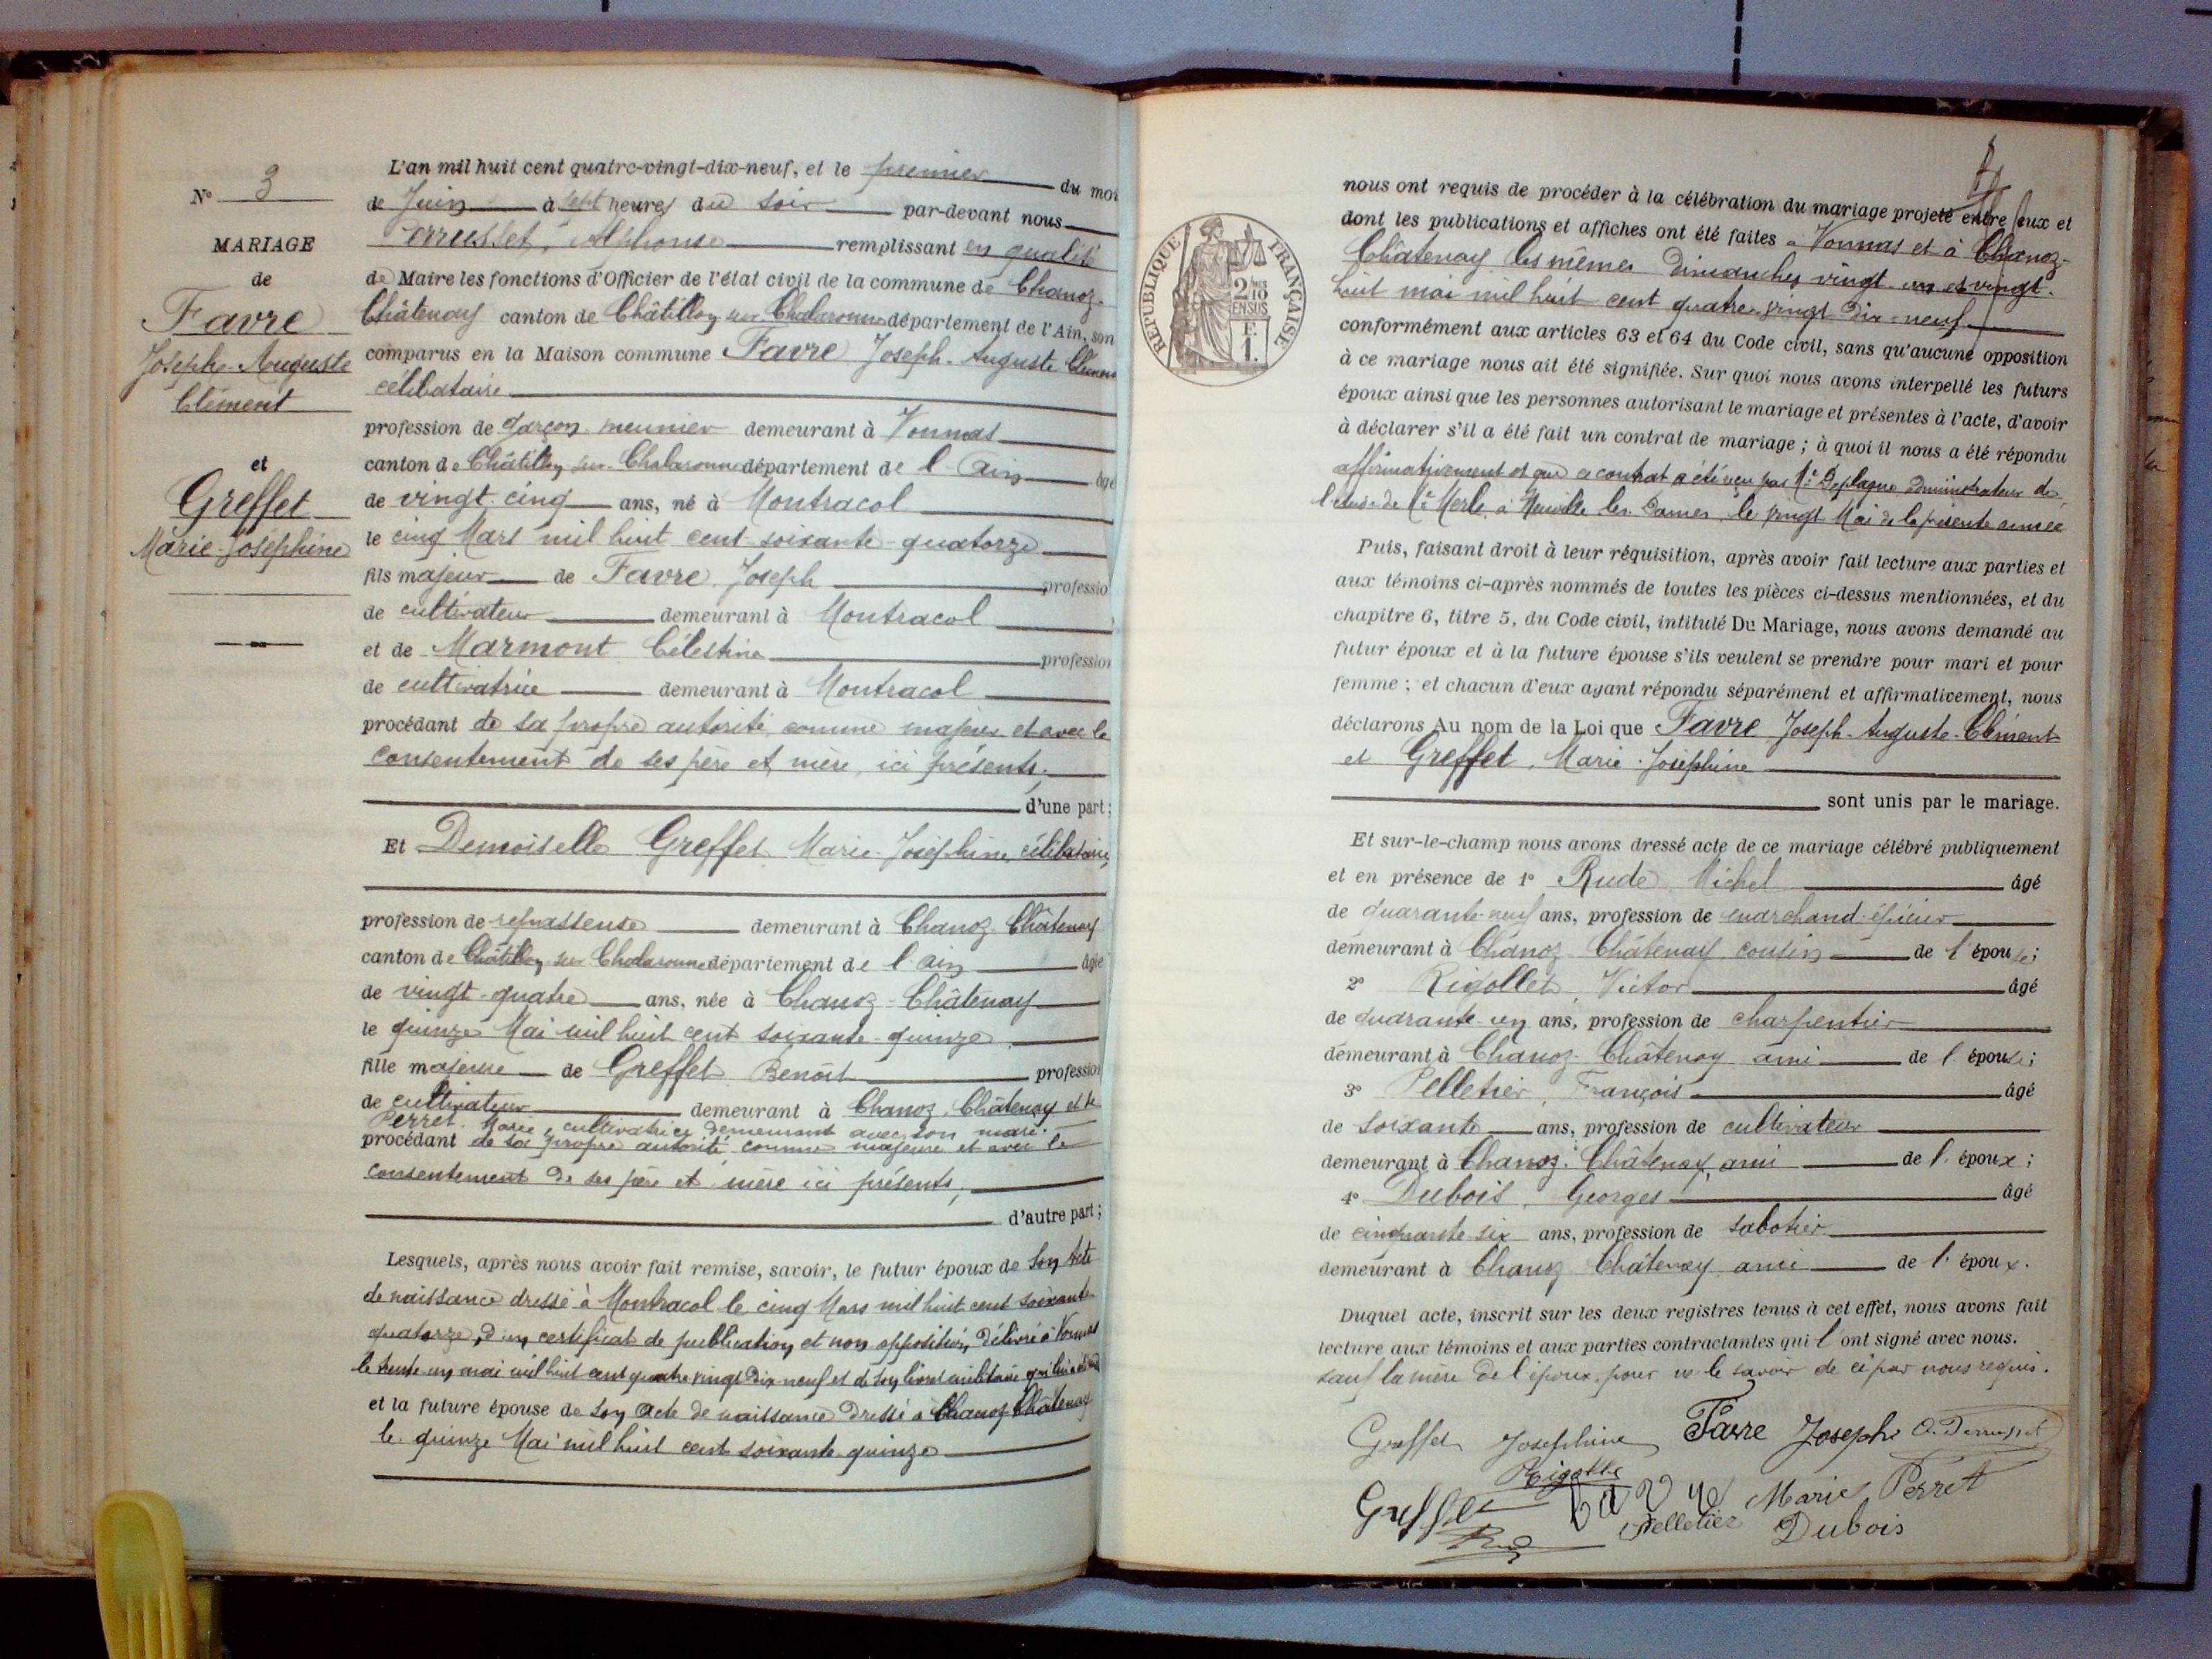 N° 3
MARIAGE
de
Favre
Joseph-Auguste
Clément
et
Greffet
Marie-Joséphine
L'an mil huit cent quatre-vingt-dix-neuf, et le premier du moi
de Juin à sept heures du soir par-devant nous
Perrusset, Alphonse remplissant en qualité
de Maire les fonctions d'Officier de l'état civil de la commune de Chanoz-
Châtenay canton de Châtillon sur Chalaronne département de l'Ain, son
comparus en la Maison commune Favre Joseph-Auguste Clément
célibataire
profession de garçon meunier demeurant à Vonnas
canton de Châtillon sur Chalaronne département de l'Ain âgé
de vingt-cinq ans, né à Montracol
le cinq Mars mil huit cent soixante-quatorze
fils majeur de Favre, Joseph professio
de cultivateur demeurant à Montracol
et de Marmont Célestine profession
de cultivatrice demeurant à Montracol
procédant de sa propre autorité comme majeur et avec le
consentement de ses père et mère, ici présents.
d'une part;
Et Demoiselle Greffet Marie-Joséphine célibataire,
profession de repasseuse demeurant à Chanoz-Châtenay
canton de Châtillon sur Chalaronne département de l'Ain âgée
de vingt-quatre ans, née à Chanoz-Châtenay
le quinze Mai mil huit cent soixante-quinze
fille majeure de Greffet Benoît profession
de cultivateur demeurant à Chanoz-Châtenay et de
Perret Marie, cultivatrice demeurant avec son mari.
procédant de sa propre autorité comme majeure et avec le
consentement de ses père et mère ici présents,
d'autre part;
Lesquels, après nous avoir fait remise, savoir, le futur époux de son Acte
de naissance dressé à Montracol le cinq Mars mil huit cent soixante
quatorze, d'un certificat de publication et non opposition, délivré à Vonnas
le trente un mai mil huit cent quatre vingt dix-neuf et de son livret militaire qui lui a été
et la future épouse de son acte de naissance dressé à Chanoz Châtenay
le quinze Mai mil huit cent soixante-quinze
RÉPUBLIQUE FRANÇAISE
2/10
EN SUS
F.
1.
nous ont requis de procéder à la célébration du mariage projeté entre eux et
dont les publications et affiches ont été faites à Vonnas et à Chanoz-
Châtenay les mêmes Dimanches vingt-un et vingt-
huit mai mil huit cent quatre-vingt dix-neuf
conformément aux articles 63 et 64 du Code civil, sans qu'aucune opposition
à ce mariage nous ait été signifiée. Sur quoi nous avons interpellé les futurs
époux ainsi que les personnes autorisant le mariage et présentes à l'acte, d'avoir
à déclarer s'il a été fait un contrat de mariage; à quoi il nous a été répondu
affirmativement et que ce contrat a été reçu par Me Desplagne administrateur de
l'étude de Me Merle, à Neuville les Dames, le vingt Mai de la présente année
Puis, faisant droit à leur réquisition, après avoir fait lecture aux parties et
aux témoins ci-après nommés de toutes les pièces ci-dessus mentionnées, et du
chapitre 6, titre 5, du Code civil, intitulé Du Mariage, nous avons demandé au
futur époux et à la future épouse s'ils veulent se prendre pour mari et pour
femme; et chacun d'eux ayant répondu séparément et affirmativement, nous
déclarons Au nom de la Loi que Favre Joseph-Auguste-Clément
et Greffet, Marie-Joséphine
sont unis par le mariage.
Et sur-le-champ nous avons dressé acte de ce mariage célébré publiquement
et en présence de 1° Rude Michel âgé
de quarante-neuf ans, profession de marchand-épicier
demeurant à Chanoz Châtenay cousin de l'épouse;
2° Rigollet, Victor âgé
de quarante-un ans, profession de charpentier
demeurant à Chanoz-Châtenay ami de l'épouse;
3° Pelletier, François âgé
de soixante ans, profession de cultivateur
demeurant à Chanoz-Châtenay, ami de l'époux;
4° Dubois, Georges âgé
de cinquante-six ans, profession de sabotier
demeurant à Chanoz Châtenay ami de l'époux.
Duquel acte, inscrit sur les deux registres tenus à cet effet, nous avons fait
lecture aux témoins et aux parties contractantes qui l'ont signé avec nous.
sauf la mère de l'époux, pour ne le savoir de ce par nous requis.
Greffet Josephine Favre Joseph A. Perrusset
Rigollet
Greffet Favre Marie Perret
Rude Pelletier Dubois